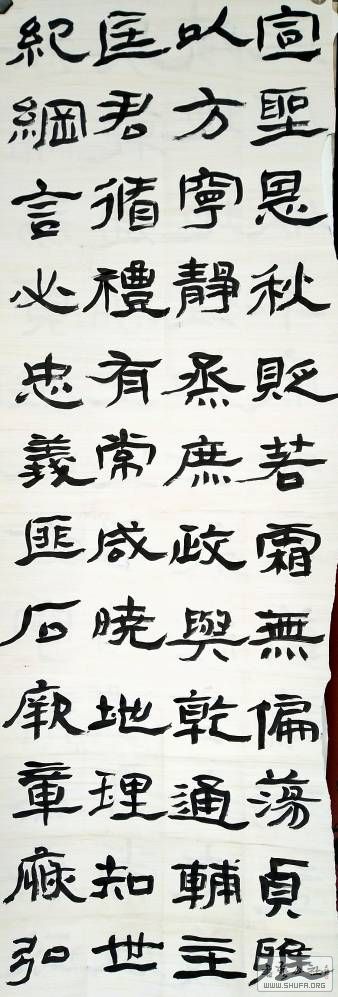 宣聖恩秋貶若霜無偏蕩貞雅
以方寧靜烝庶政與乾通輔主
匡君循禮有常咸曉地理知世
紀綱言必忠義匪石厥章厥弘
WWW.SHUFA.ORG